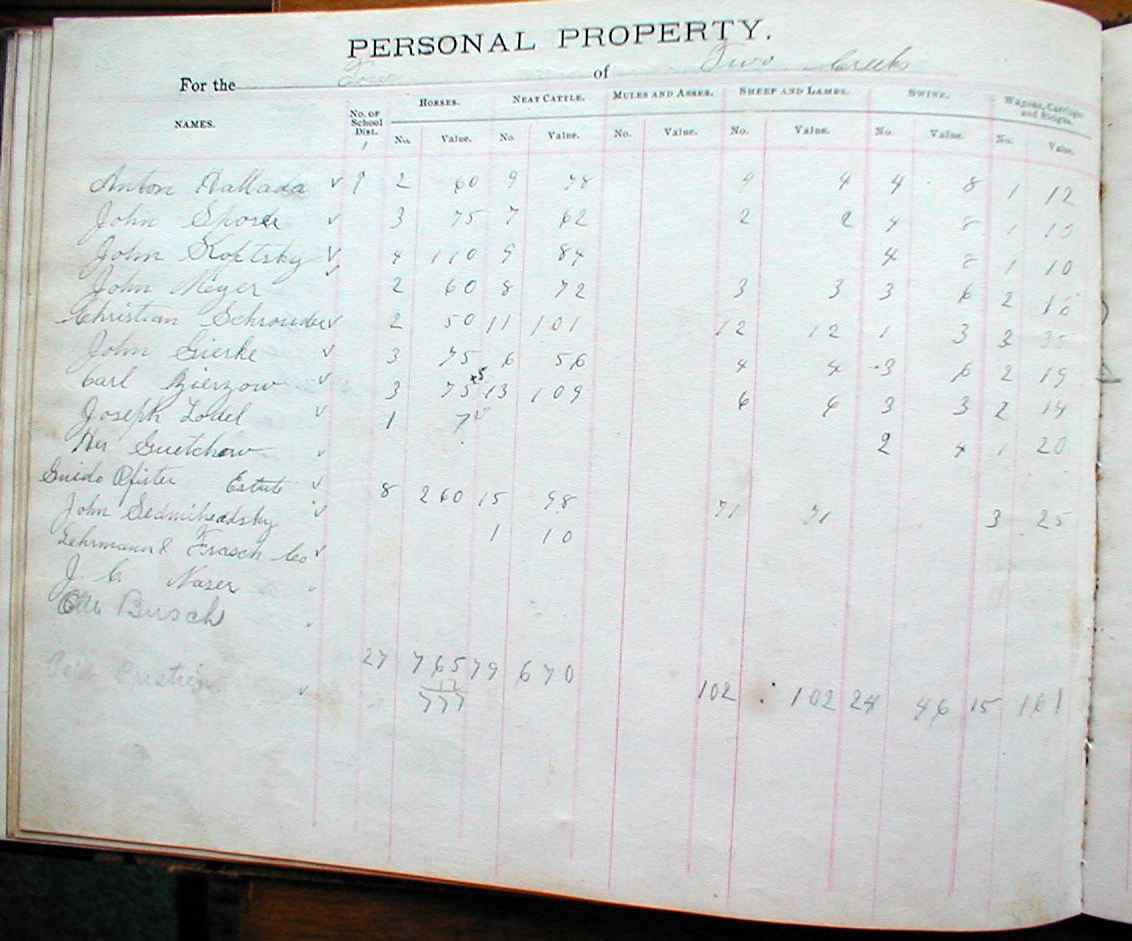 PERSONAL PROPERTY.
For the Town of Two Creeks
NAMES. No. of School Dist. 1 HORSES. NEAT CATTLE. MULES AND ASSES. SHEEP AND LAMBS. SWINE. Wagons, Carriages and Sleighs.
No. Value. No. Value. No. Value. No. Value. No. Value. No. Value.
Anton ✓ 2 60 9 78 4 4 4 8 1 12
John ✓ 3 75 7 62 2 2 4 8 1 10
John ✓ 4 110 9 84 4 8 1 10
John Meyer ✓ 2 60 8 72 3 3 3 6 2
Christian Schroeder ✓ 2 50 11 101 12 12 1 3 3 35
John Gierke ✓ 3 75 6 56 4 4 3 6 2 19
Carl Zierzow ✓ 3 75 13 109 6 6 3 3 2 14
Joseph ✓ 1
Guetchow ✓ 2 4 1 20
Guido Pfister Estate ✓ 8 260 15 98 71 71 3 25
John ✓ 1 10
Lehrmann & Frasch Co ✓
J. C. Naser
Otto Busch
27 765 79 670 102 102 24 46 15 161
12
777